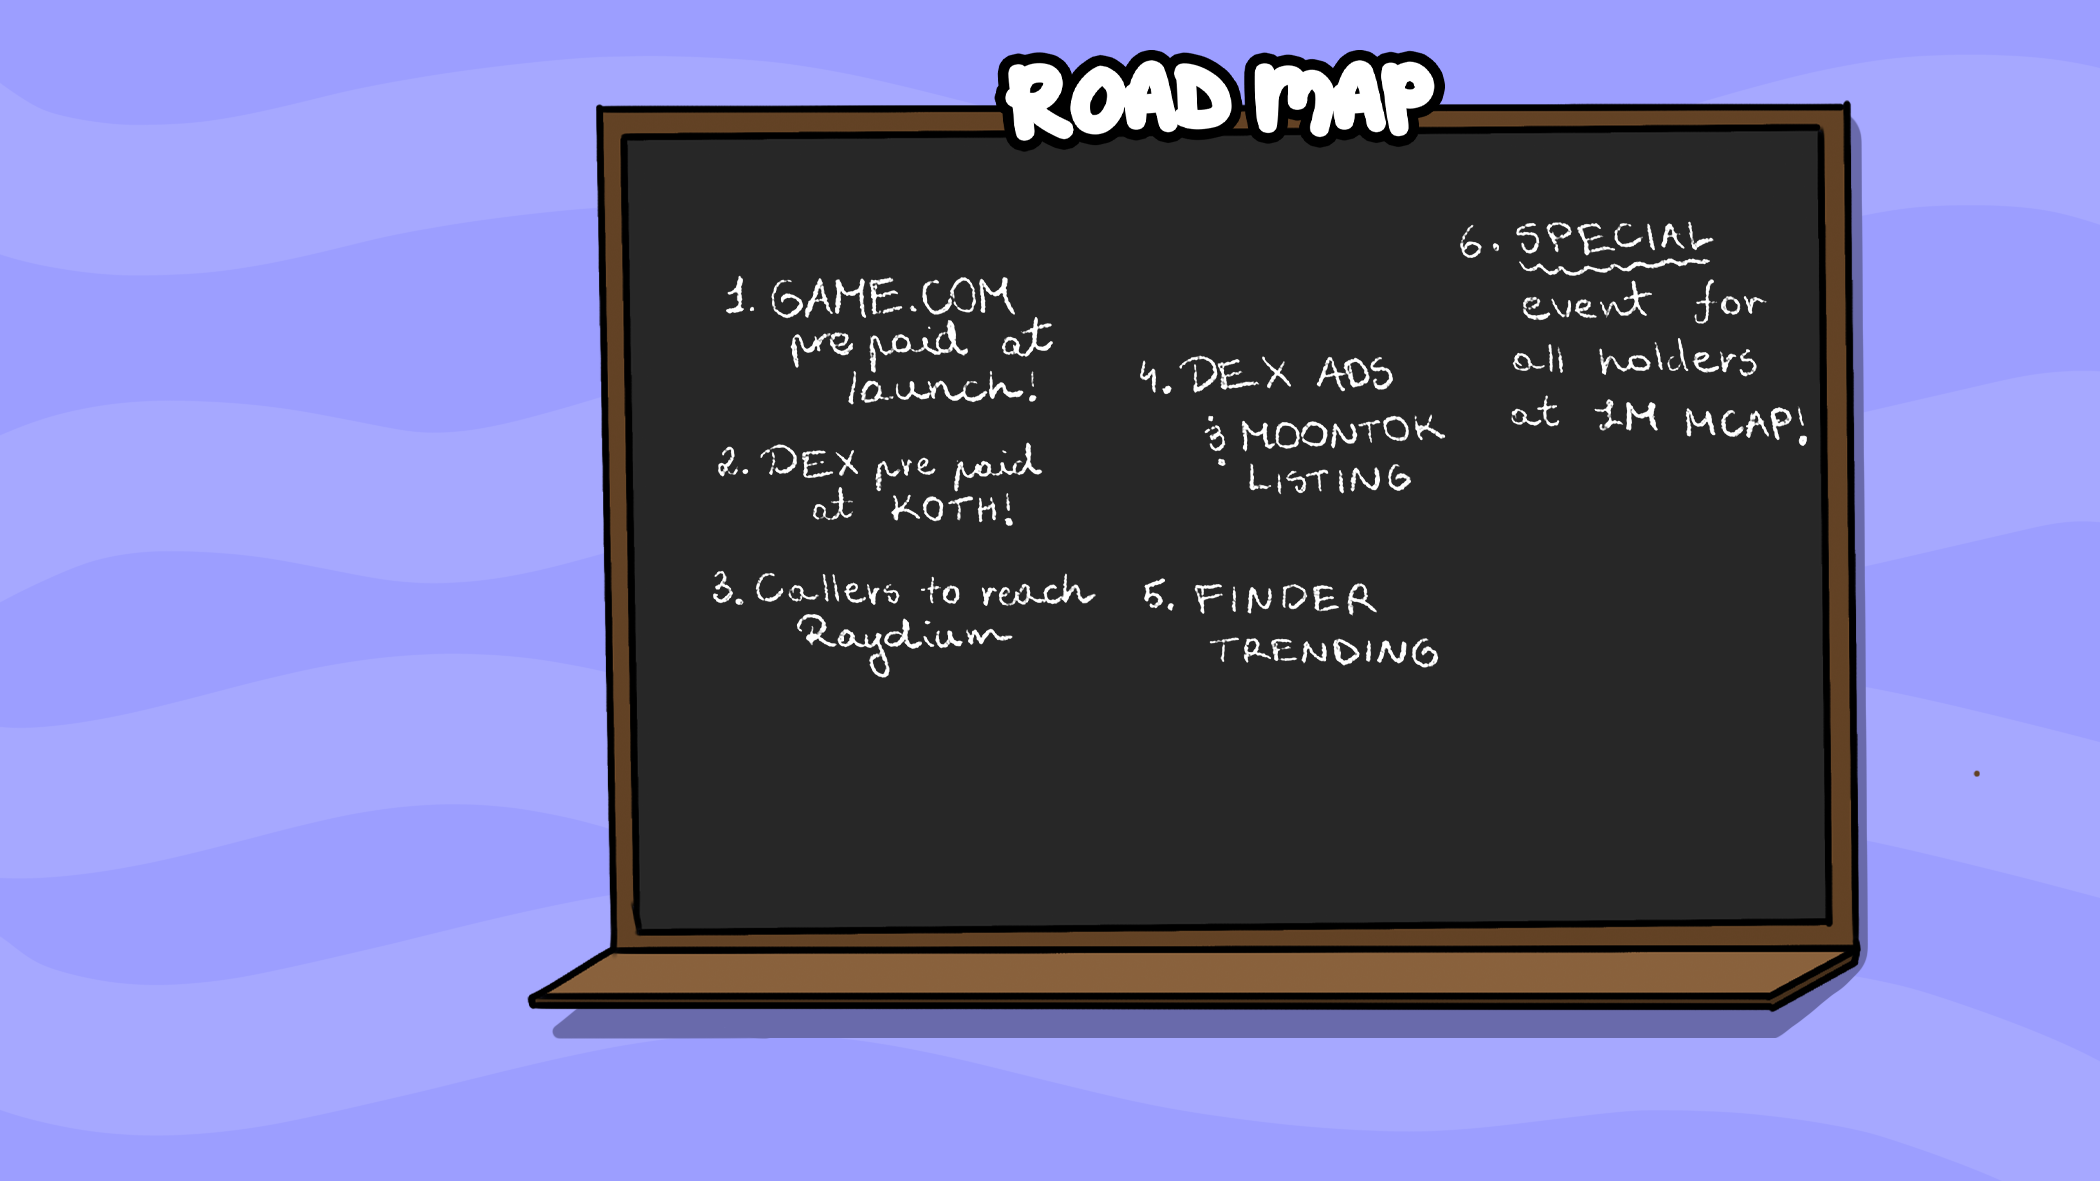 ROAD MAP
1. GAME.COM
pre paid at
launch!
2. DEX pre paid
at KOTH!
3. Callers to reach
Raydium
4. DEX ADS
& MOONTOK
LISTING
5. FINDER
TRENDING
6. SPECIAL
event for
all holders
at 1M MCAP!